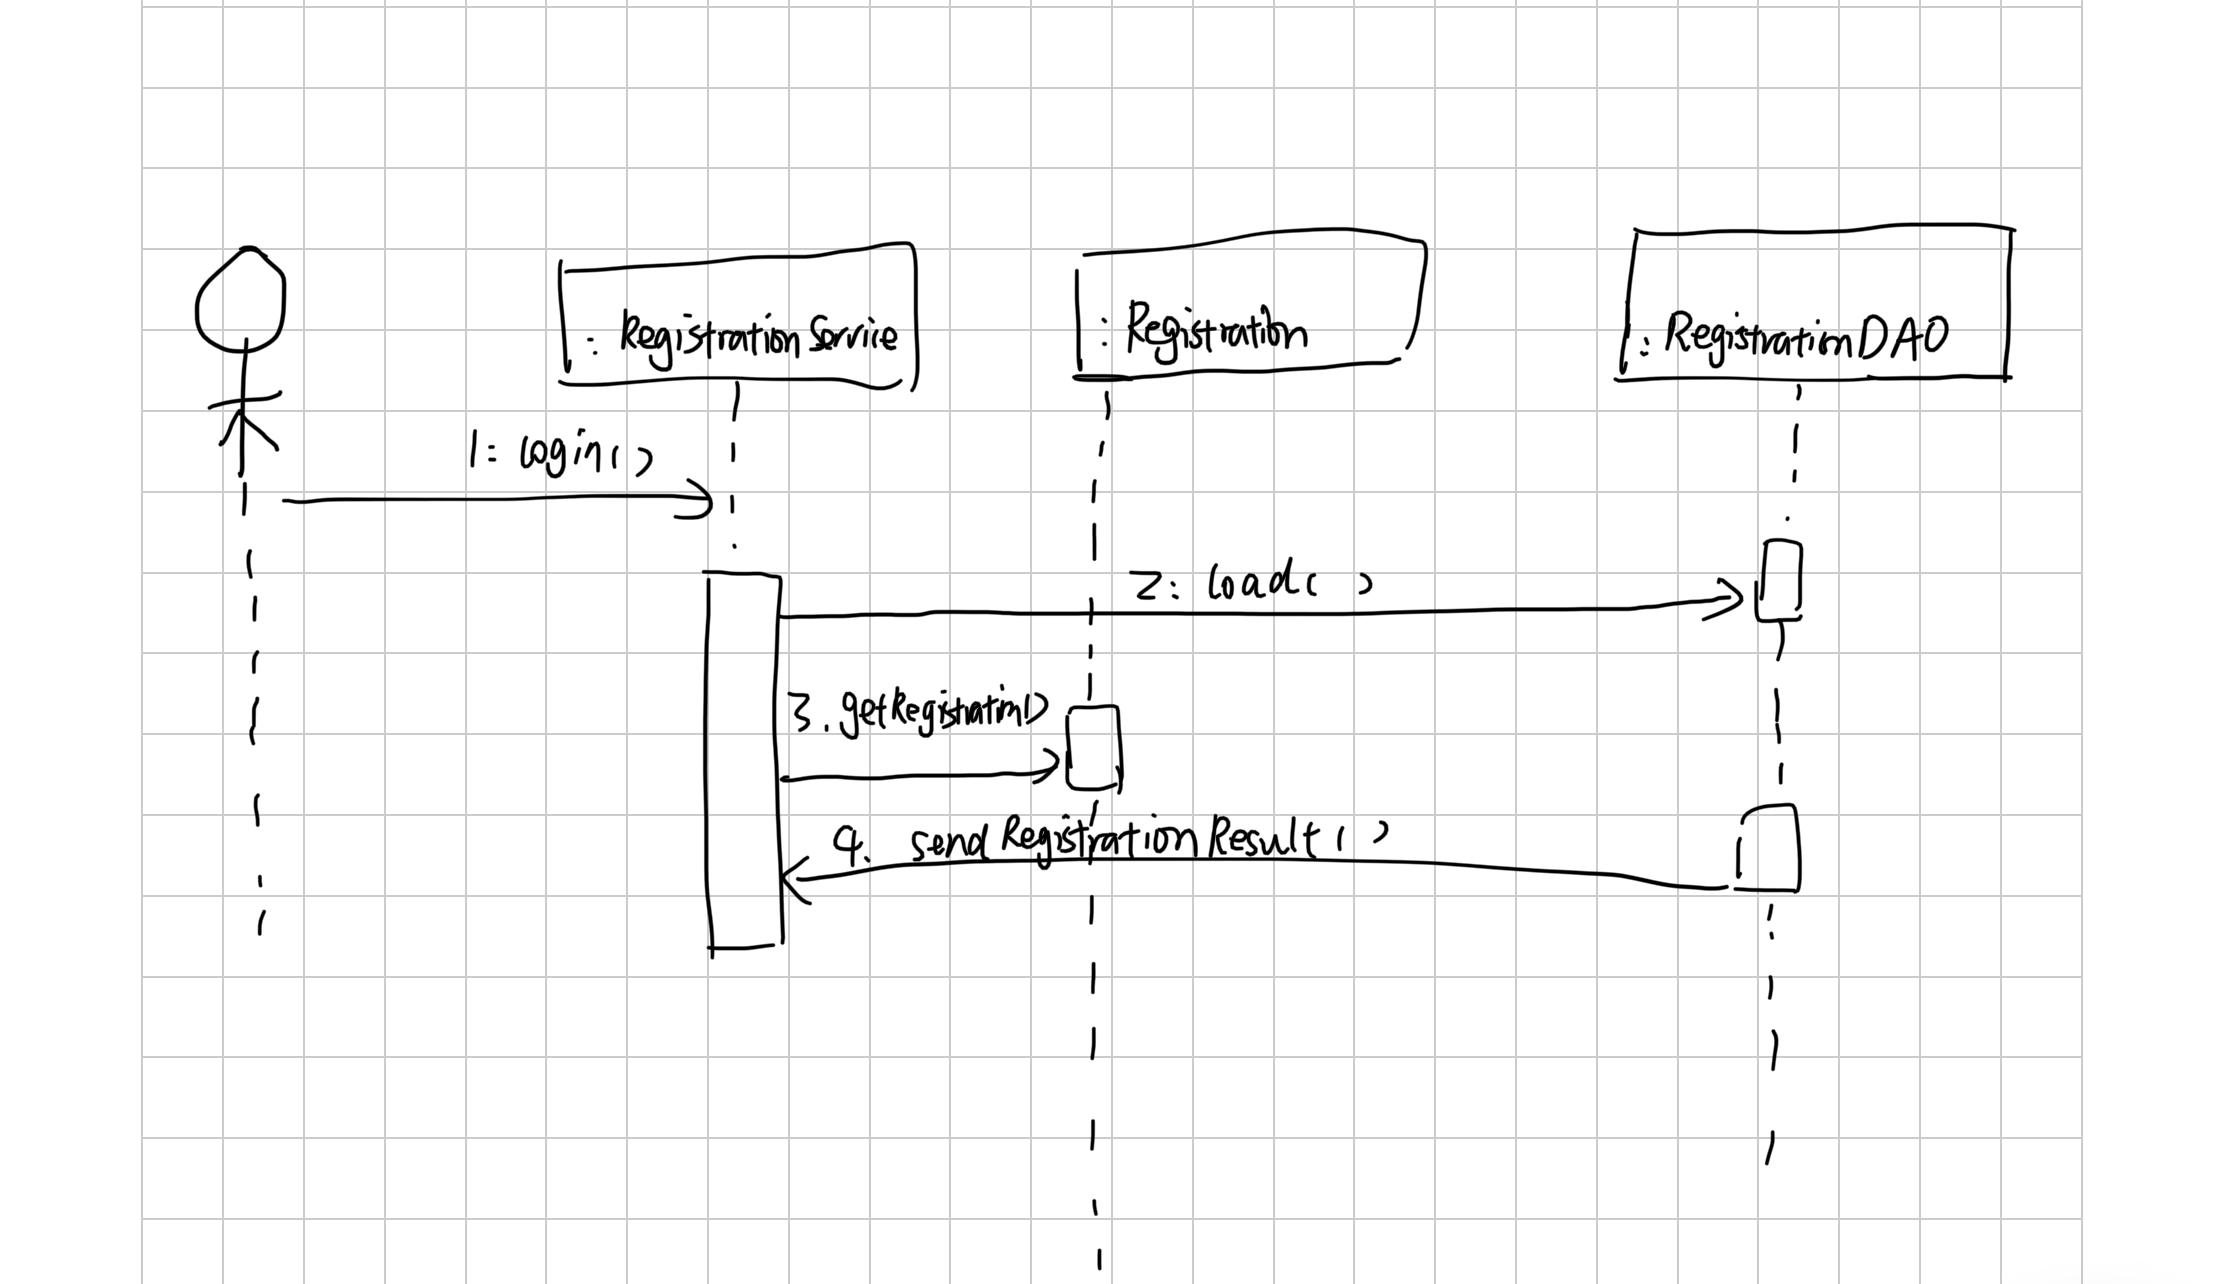 : RegistrationService
: Registration
: RegistrationDAO
1: login()
2: load( )
3. getRegistration()
4. sendRegistrationResult( )